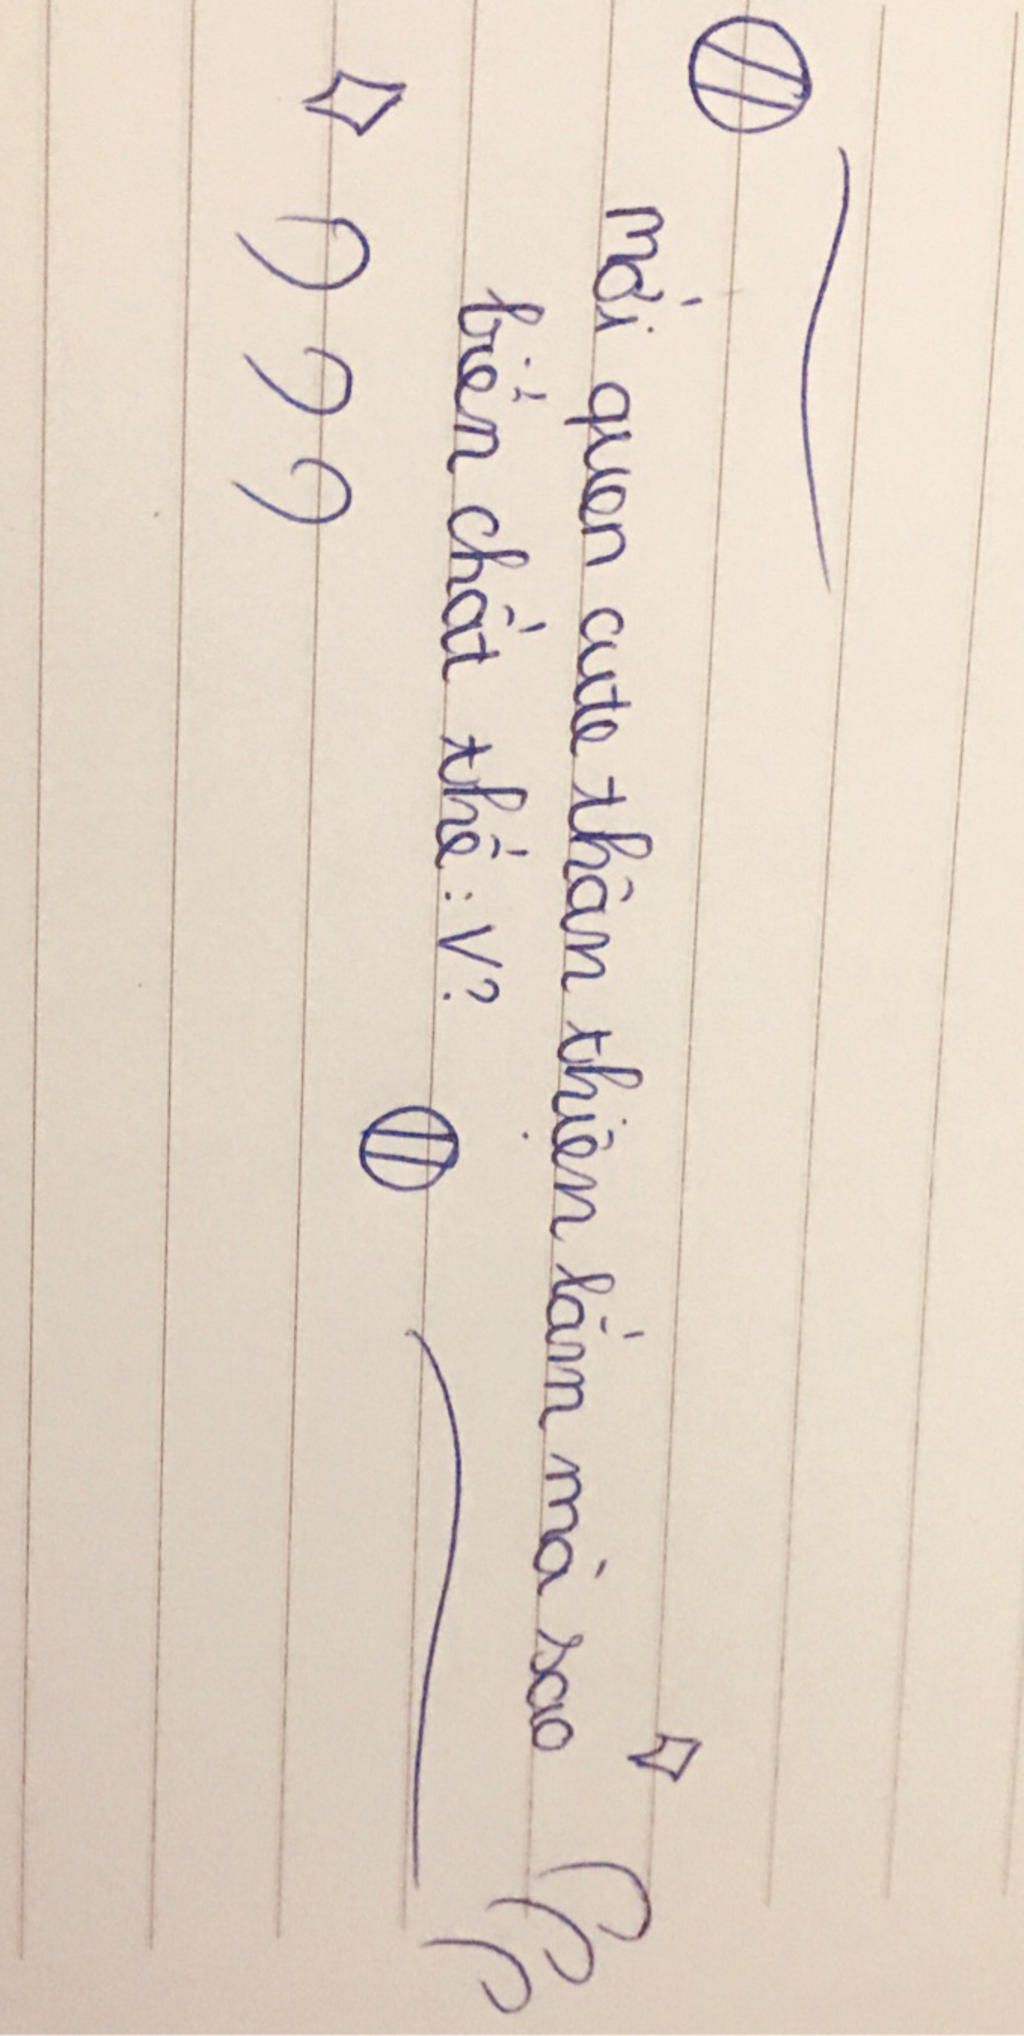 mới quen cute thân thiện lắm mà sao
biến chất thế :V?